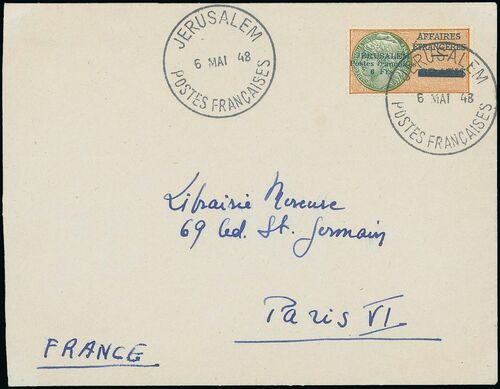 JERUSALEM
6 MAI 48
POSTES FRANÇAISES
AFFAIRES
ETRANGÈRES
JERUSALEM
Postes françaises
6 Frs
JERUSALEM
6 MAI 48
POSTES FRANÇAISES
Librairie Mereure
69 Bd. St. Germain
Paris VI
FRANCE